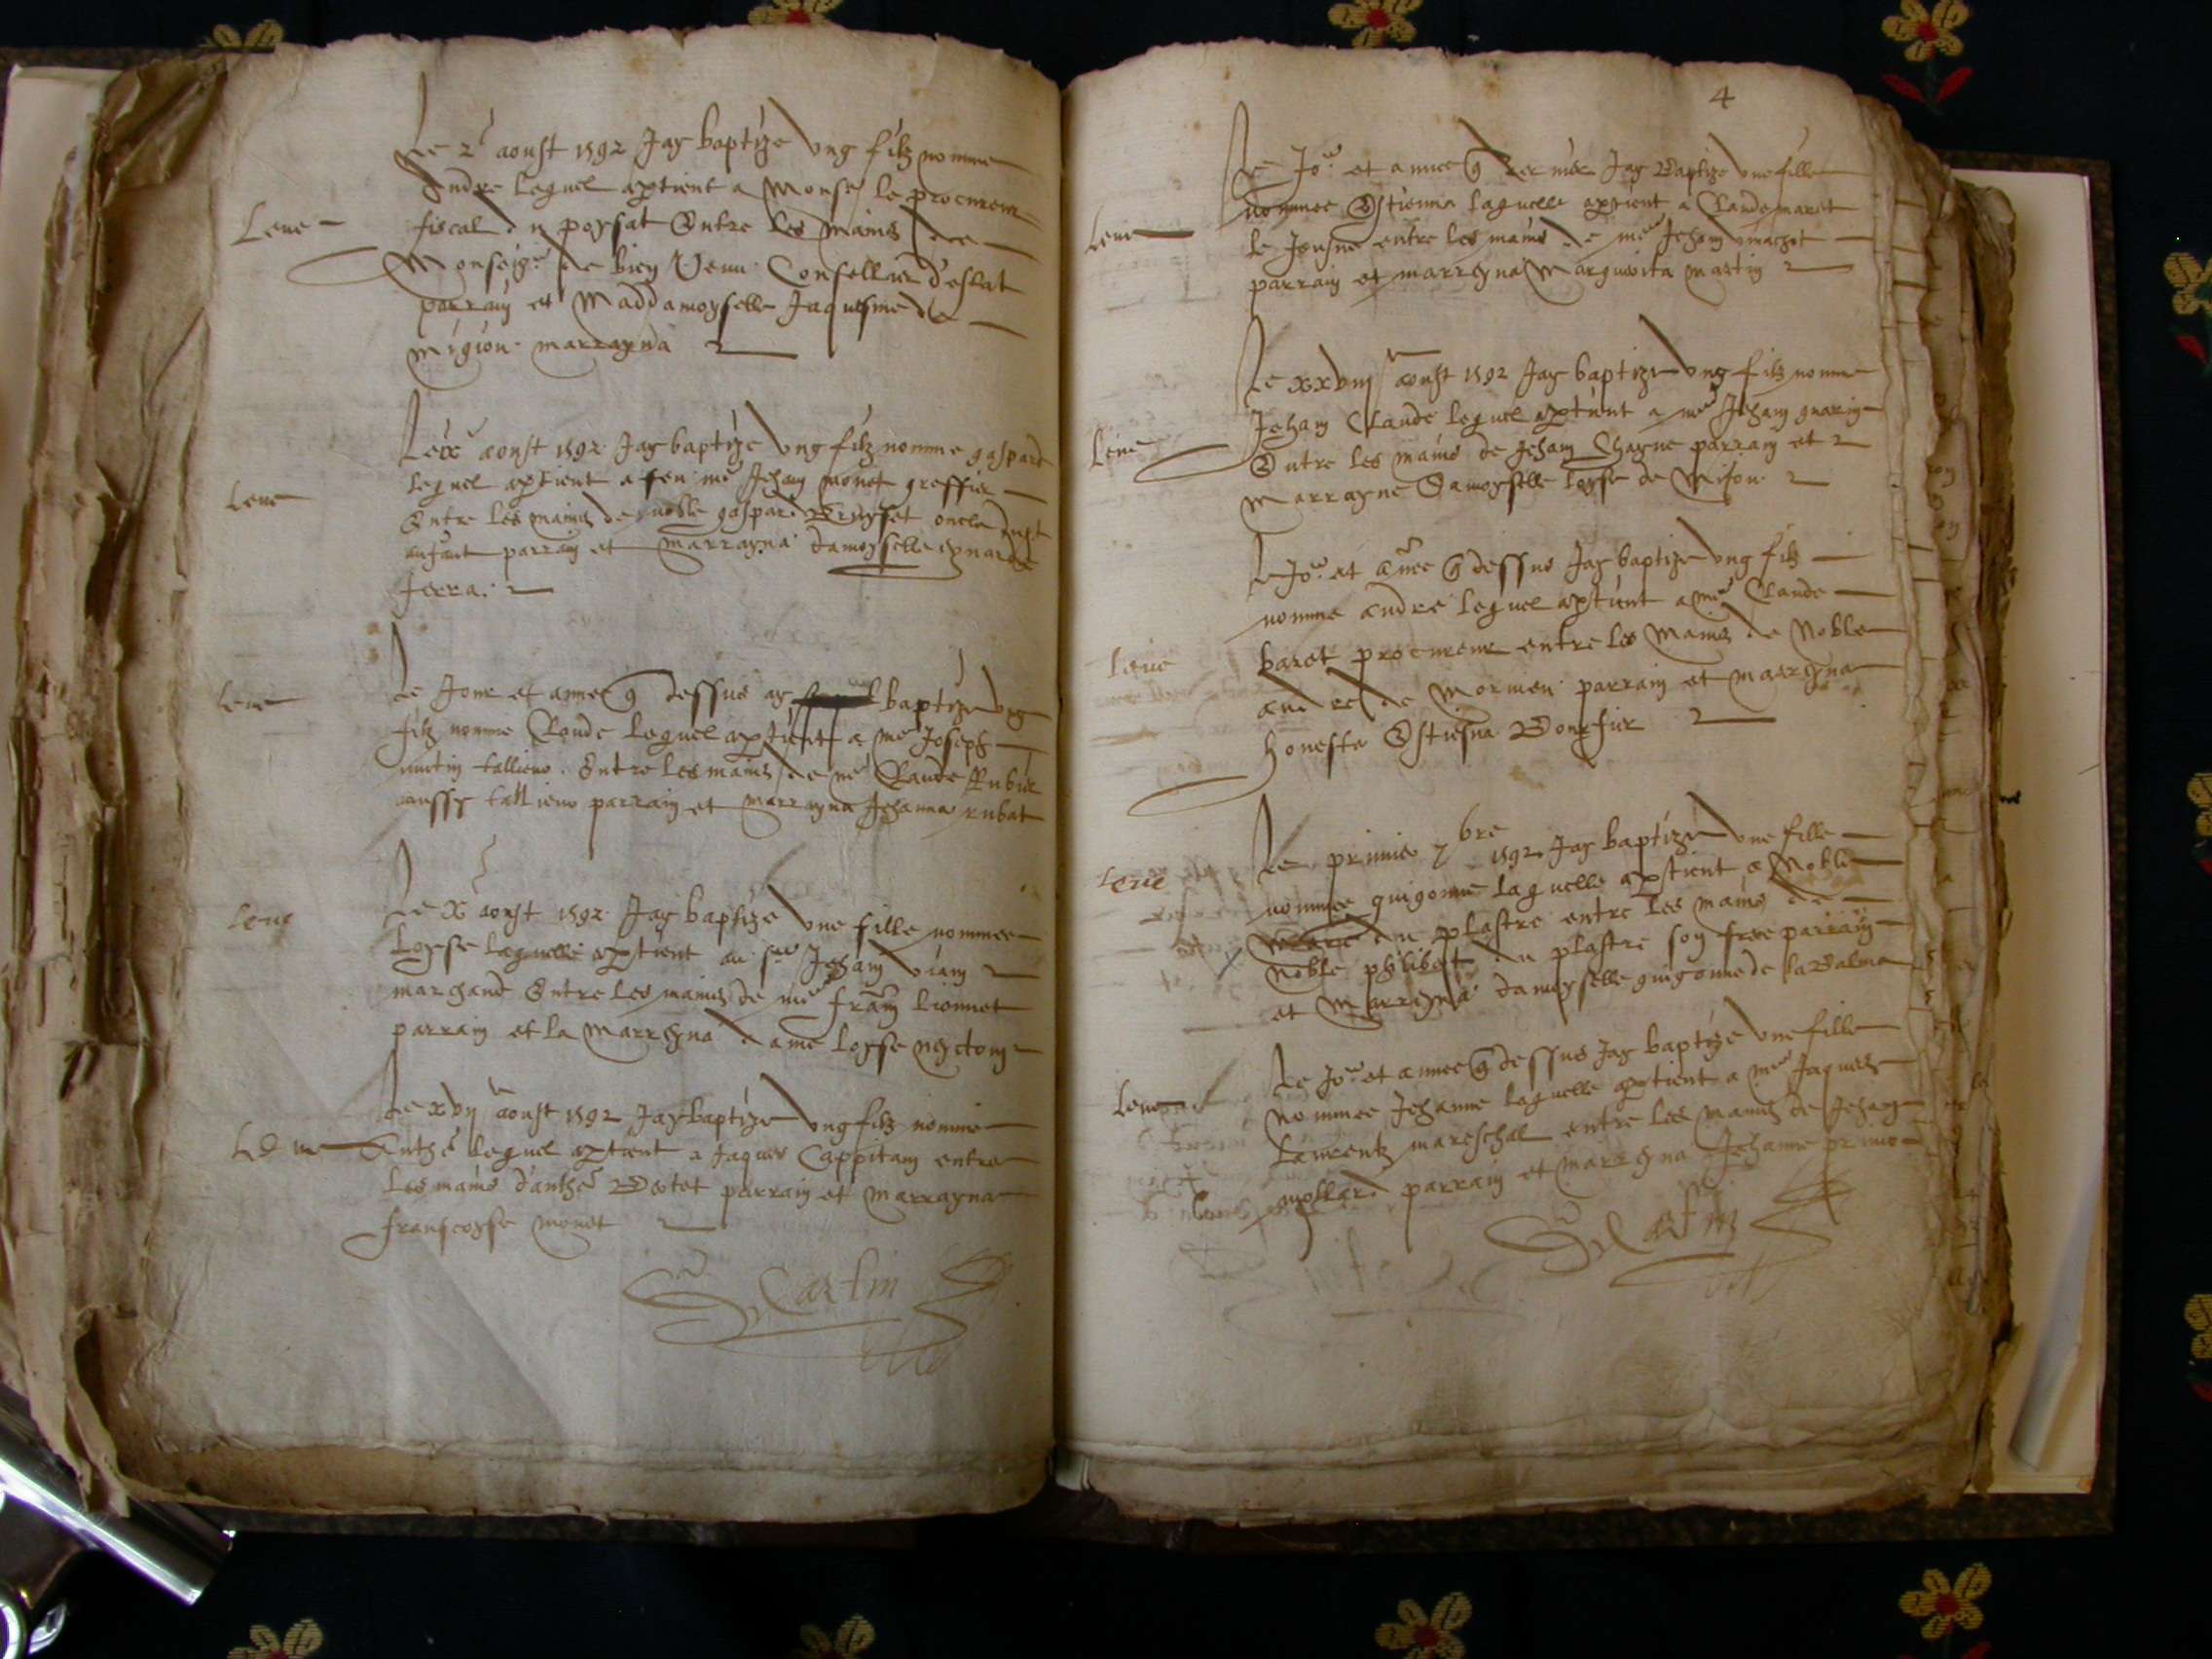 Le 2 aoust 1592 Jay baptize ung filz nomme
Andre lequel aptient a Monsr le procureur
Leve
fiscal du poysat Entre les mains de
Monseigr de bien Venu Consellier d'estat
parrain et Maddamoyselle Jaquesme de
migion marrayna
Le ix aoust 1592 Jay baptize ung filz nomme gaspard
lequel aptient a feu me Jehan monet greffier
Leve
Entre les mains de noble gaspard oncle dudt
anfant parrain et marrayna damoyselle
Le Jour et annee q dessus ay baptize ung
Leve
filz nomme Claude lequel aptient a me Joseph
Entre les mains de me Claude
aussy parrain et marrayna Jehanna rubat
Le x aoust 1592 Jay baptize une fille nommee
Leve
Loyse laquelle aptient au sr Jehan
marchand Entre les mains de me
parrain et la marreyna dame loyse
Le xvij aoust 1592 Jay baptize ung filz nomme
Leve
Anthe lequel aptient a Jaques Cappitan entre
les mains d'anthe parrain et marrayna
francoyse monet
Martin
4
Le Jor et annee q dernier Jay Baptize une fille
nommee Estienna laquelle aptient a Claude maret
Leve
le Jeusne entre les mains de me Jehan
parrain et marreyna Marguerita martin
Le xxviij aoust 1592 Jay baptize ung filz nomme
Jehan Claude lequel aptient a me Jehan guarin
Leve
Entre les mains de Jehan Chayne parrain et
Marrayne Damoyselle loyse de
Le Jor et annee q dessus Jay baptize ung filz
nomme andre lequel aptient a me Claude
Leve
baret procureur entre les mains de Noble
andre de Mornieu parrain et marreyna
honeste Estiesna
Le primier 7bre 1592 Jay baptize une fille
Leve
nommee guigonne laquelle aptient a Noble
du plastre entre les mains de
Noble philibert du plastre son frere parrain
et Marreyna damoyselle guigonne de la Balma
Le Jor et annee q dessus Jay baptize une fille
Leve
nommee Jehanne laquelle aptient a me Jaques
Laurentz mareschal entre les mains de Jehan
mollard parrain et marreyna Jehanne
Martin